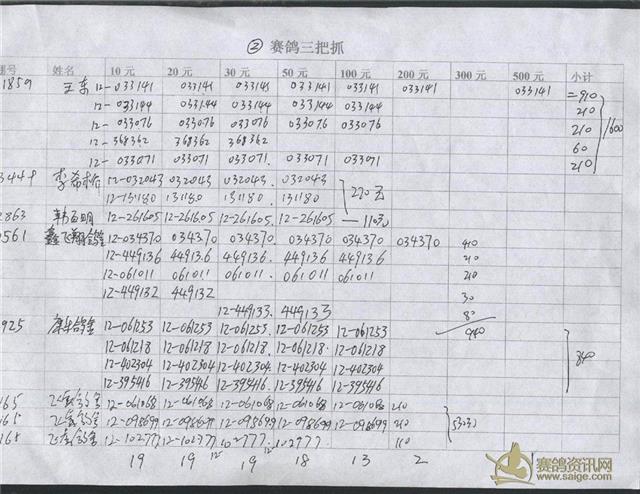 ② 赛鸽三把抓
号 姓名 10 元 20 元 30 元 50 元 100 元 200 元 300 元 500 元 小计
1859 王东 12-033141 033141 033141 033141 033141 033141 033141 =910
12-033144 033144 033144 033144 033144 210
12-033076 033076 033076 033076 033076 210 1600
12-368362 368362 368362 60
12-033071 033071 033071 033071 033071 210
3448 李希 12-032043 032043 032043. 032043
12-131180 131180 131180. 131180 220元
2863 韩 明 12-261605 12-261605 12-261605. 12-261605 — 110元
0561 鑫飞翔鸽舍 12-034370 034370 034370 034370 034370 034370 410
12-449136 449136 449136 449136 449136 210
12-061011 061011 061011. 061011 061011 210
12-449132 449132 30
12-449133. 449133 80
925 康华鸽舍 12-061253 12-061253 12-061253. 12-061253 12-061253 940
12-061218 12-061218 12-061218. 12-061218. 12-061218
12-402304 12-402304 12-402304 12-402304 12-402304 840
12-395416 12-395416 12-395416. 12-395416 12-395416
165 飞 鸽舍 12-061068 12-061068 12-061068 12-061068 12-061068 210
165 飞 鸽舍 12-098699 12-098699 12-098699 12-098699 12-098699 210 530元
165 飞 鸽舍 12-102977 12-102977 102977. 102977. 110
19 19 12- 19 12- 18 13 2
赛鸽资讯网
www.saige.com